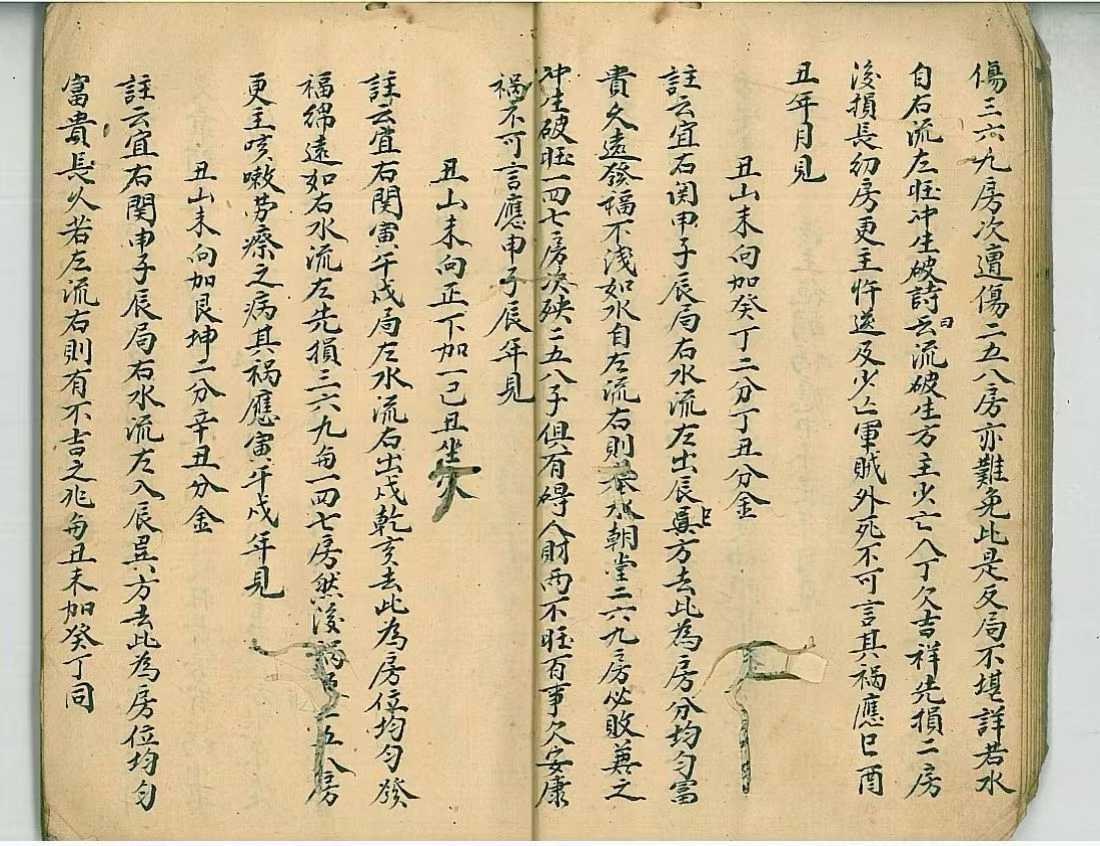 傷三六九房次遭傷二五八房亦難免此是反局不堪詳若水
自右流左旺冲生破詩云曰流破生方主少亡人丁欠吉祥先損二房
後損長幼房更主忤逆及少亡軍賊外死不可言其禍應巳酉
丑年月見
丑山未向加癸丁二分丁丑分金
註云宜右関申子辰局右水流左出辰巽上方去此為房分均匀富
貴久遠發福不淺如水自左流右則水朝堂三六九房必敗兼之
冲生破旺一四七房次殃二五八子俱有碍人財両不旺百事欠安康
禍不可言應申子辰年見
丑山未向正下加一己丑坐
註云宜右関寅午戌局左水流右出戌乾亥去此為房位均匀發
福綿遠如右水流左先損三六九与一四七房然後五八房
更主咳嗽劳瘵之病其禍應寅午戌年見
丑山未向加艮坤二分辛丑分金
註云宜右関申子辰局右水流左入辰巽方去此為房位均匀
富貴長久若左流右則有不吉之兆与丑未加癸丁同